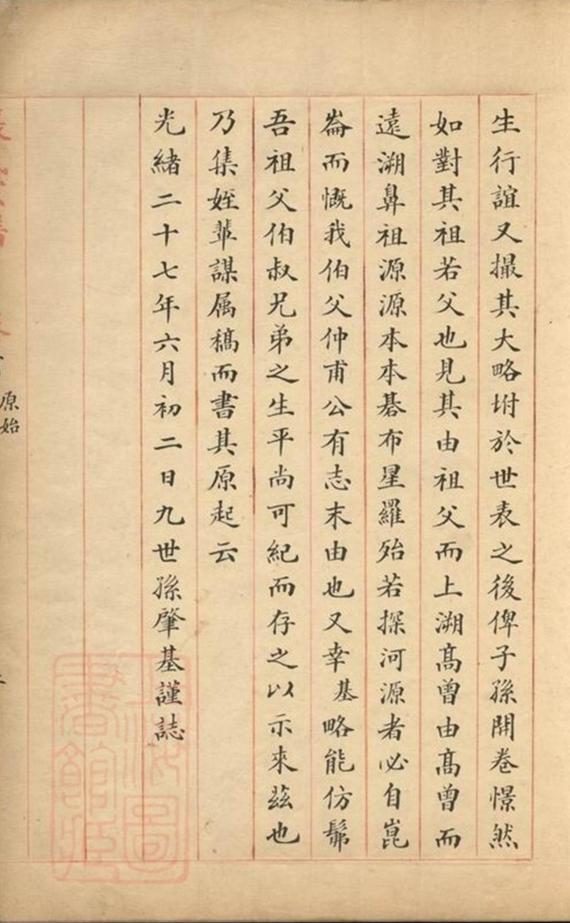 生行誼又撮其大略坿於世表之後俾子孫開卷憬然
如對其祖若父也見其由祖父而上溯高曾由高曾而
遠溯鼻祖源源本本碁布星羅殆若探河源者必自崑
崙而慨我伯父仲甫公有志未由也又幸基略能仿髴
吾祖父伯叔兄弟之生平尚可紀而存之以示來茲也
乃集姪輩謀属稿而書其原起云
光緒二十七年六月初二日九世孫肇基謹誌
原始